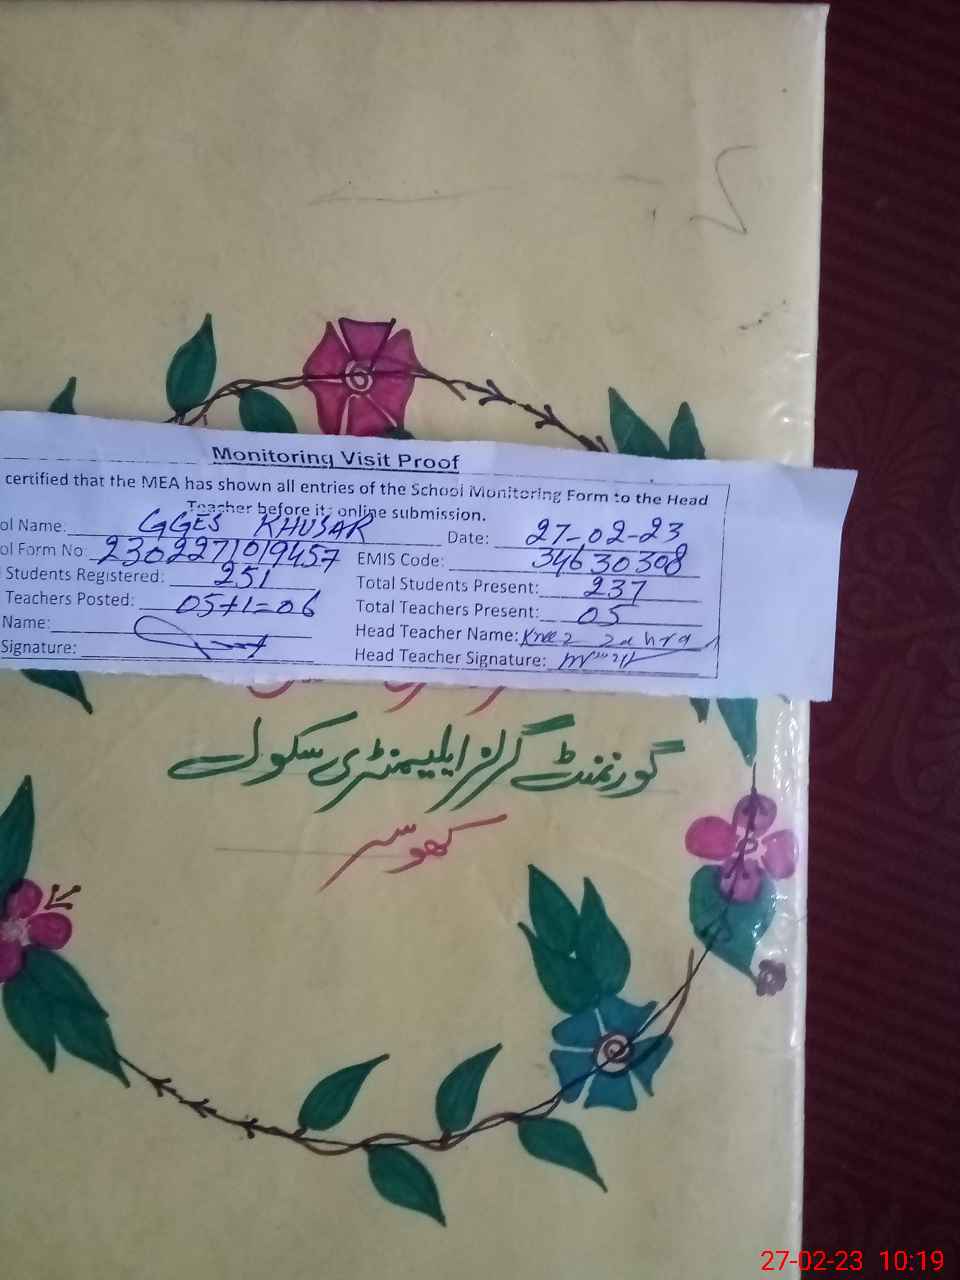 Monitoring Visit Proof
certified that the MEA has shown all entries of the School Monitoring Form to the Head
Teacher before it; online submission.
ol Name: GGES KHUSAR Date: 27-02-23
ol Form No: 2302271019457 EMIS Code: 34630308
Students Registered: 251 Total Students Present: 237
Teachers Posted: 05+1=06 Total Teachers Present: 05
Name: Head Teacher Name: zahra
Signature: Head Teacher Signature:
گورنمنٹ گرلز ایلیمنٹری سکول
کھوسر
27-02-23 10:19